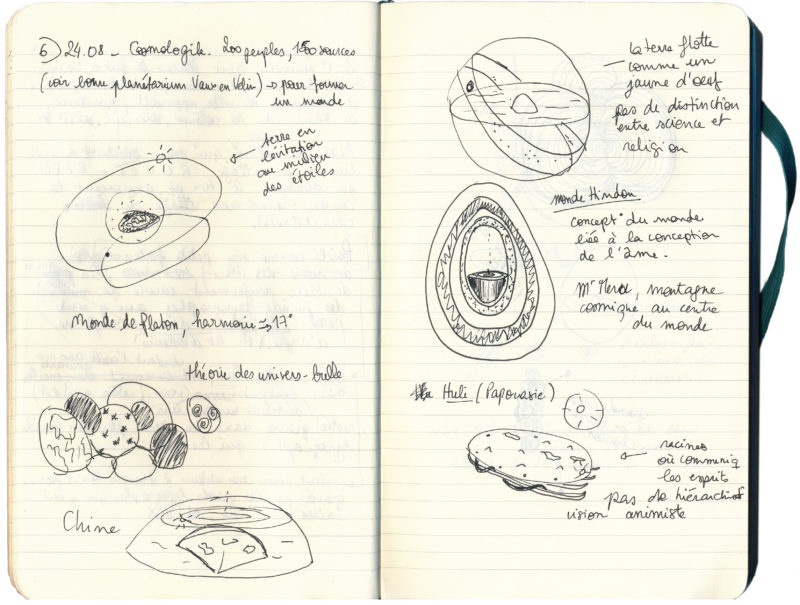 6) 24.08 - Cosmologik. 200 peuples, 150 sources
(voir bonus planétarium Vaux en Vélin) → pour former
un monde
terre en
lévitation
au milieu
des étoiles
Monde de Platon, harmonie
théorie des univers-bulle
Chine
la terre flotte
comme un
jaune d'oeuf
pas de distinction
entre science et
religion
monde Hindou
concept° du monde
liée à la conception
de l'âme.
Mt Meru, montagne
cosmique au centre
du monde
Huli (Papouasie)
racines
où communiq
les esprits
pas de hiérarchie
vision animiste